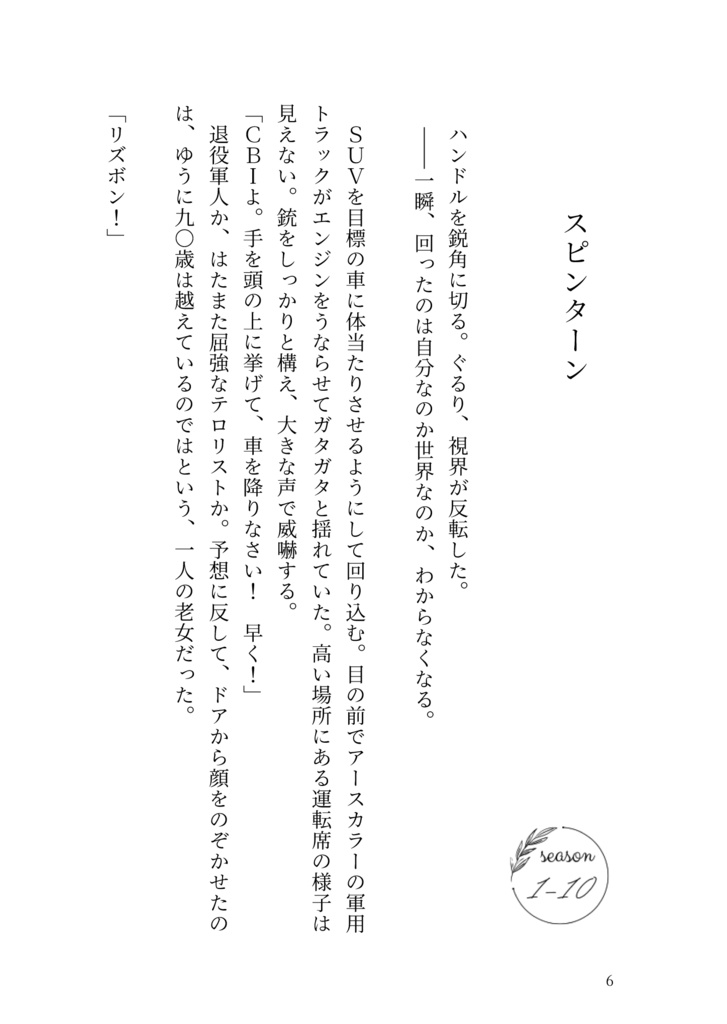 スピンターン
season
1-10
ハンドルを鋭角に切る。ぐるり、視界が反転した。
――一瞬、回ったのは自分なのか世界なのか、わからなくなる。
ＳＵＶを目標の車に体当たりさせるようにして回り込む。目の前でアースカラーの軍用
トラックがエンジンをうならせてガタガタと揺れていた。高い場所にある運転席の様子は
見えない。銃をしっかりと構え、大きな声で威嚇する。
「ＣＢＩよ。手を頭の上に挙げて、車を降りなさい！　早く！」
退役軍人か、はたまた屈強なテロリストか。予想に反して、ドアから顔をのぞかせたの
は、ゆうに九〇歳は越えているのではという、一人の老女だった。
「リズボン！」
6